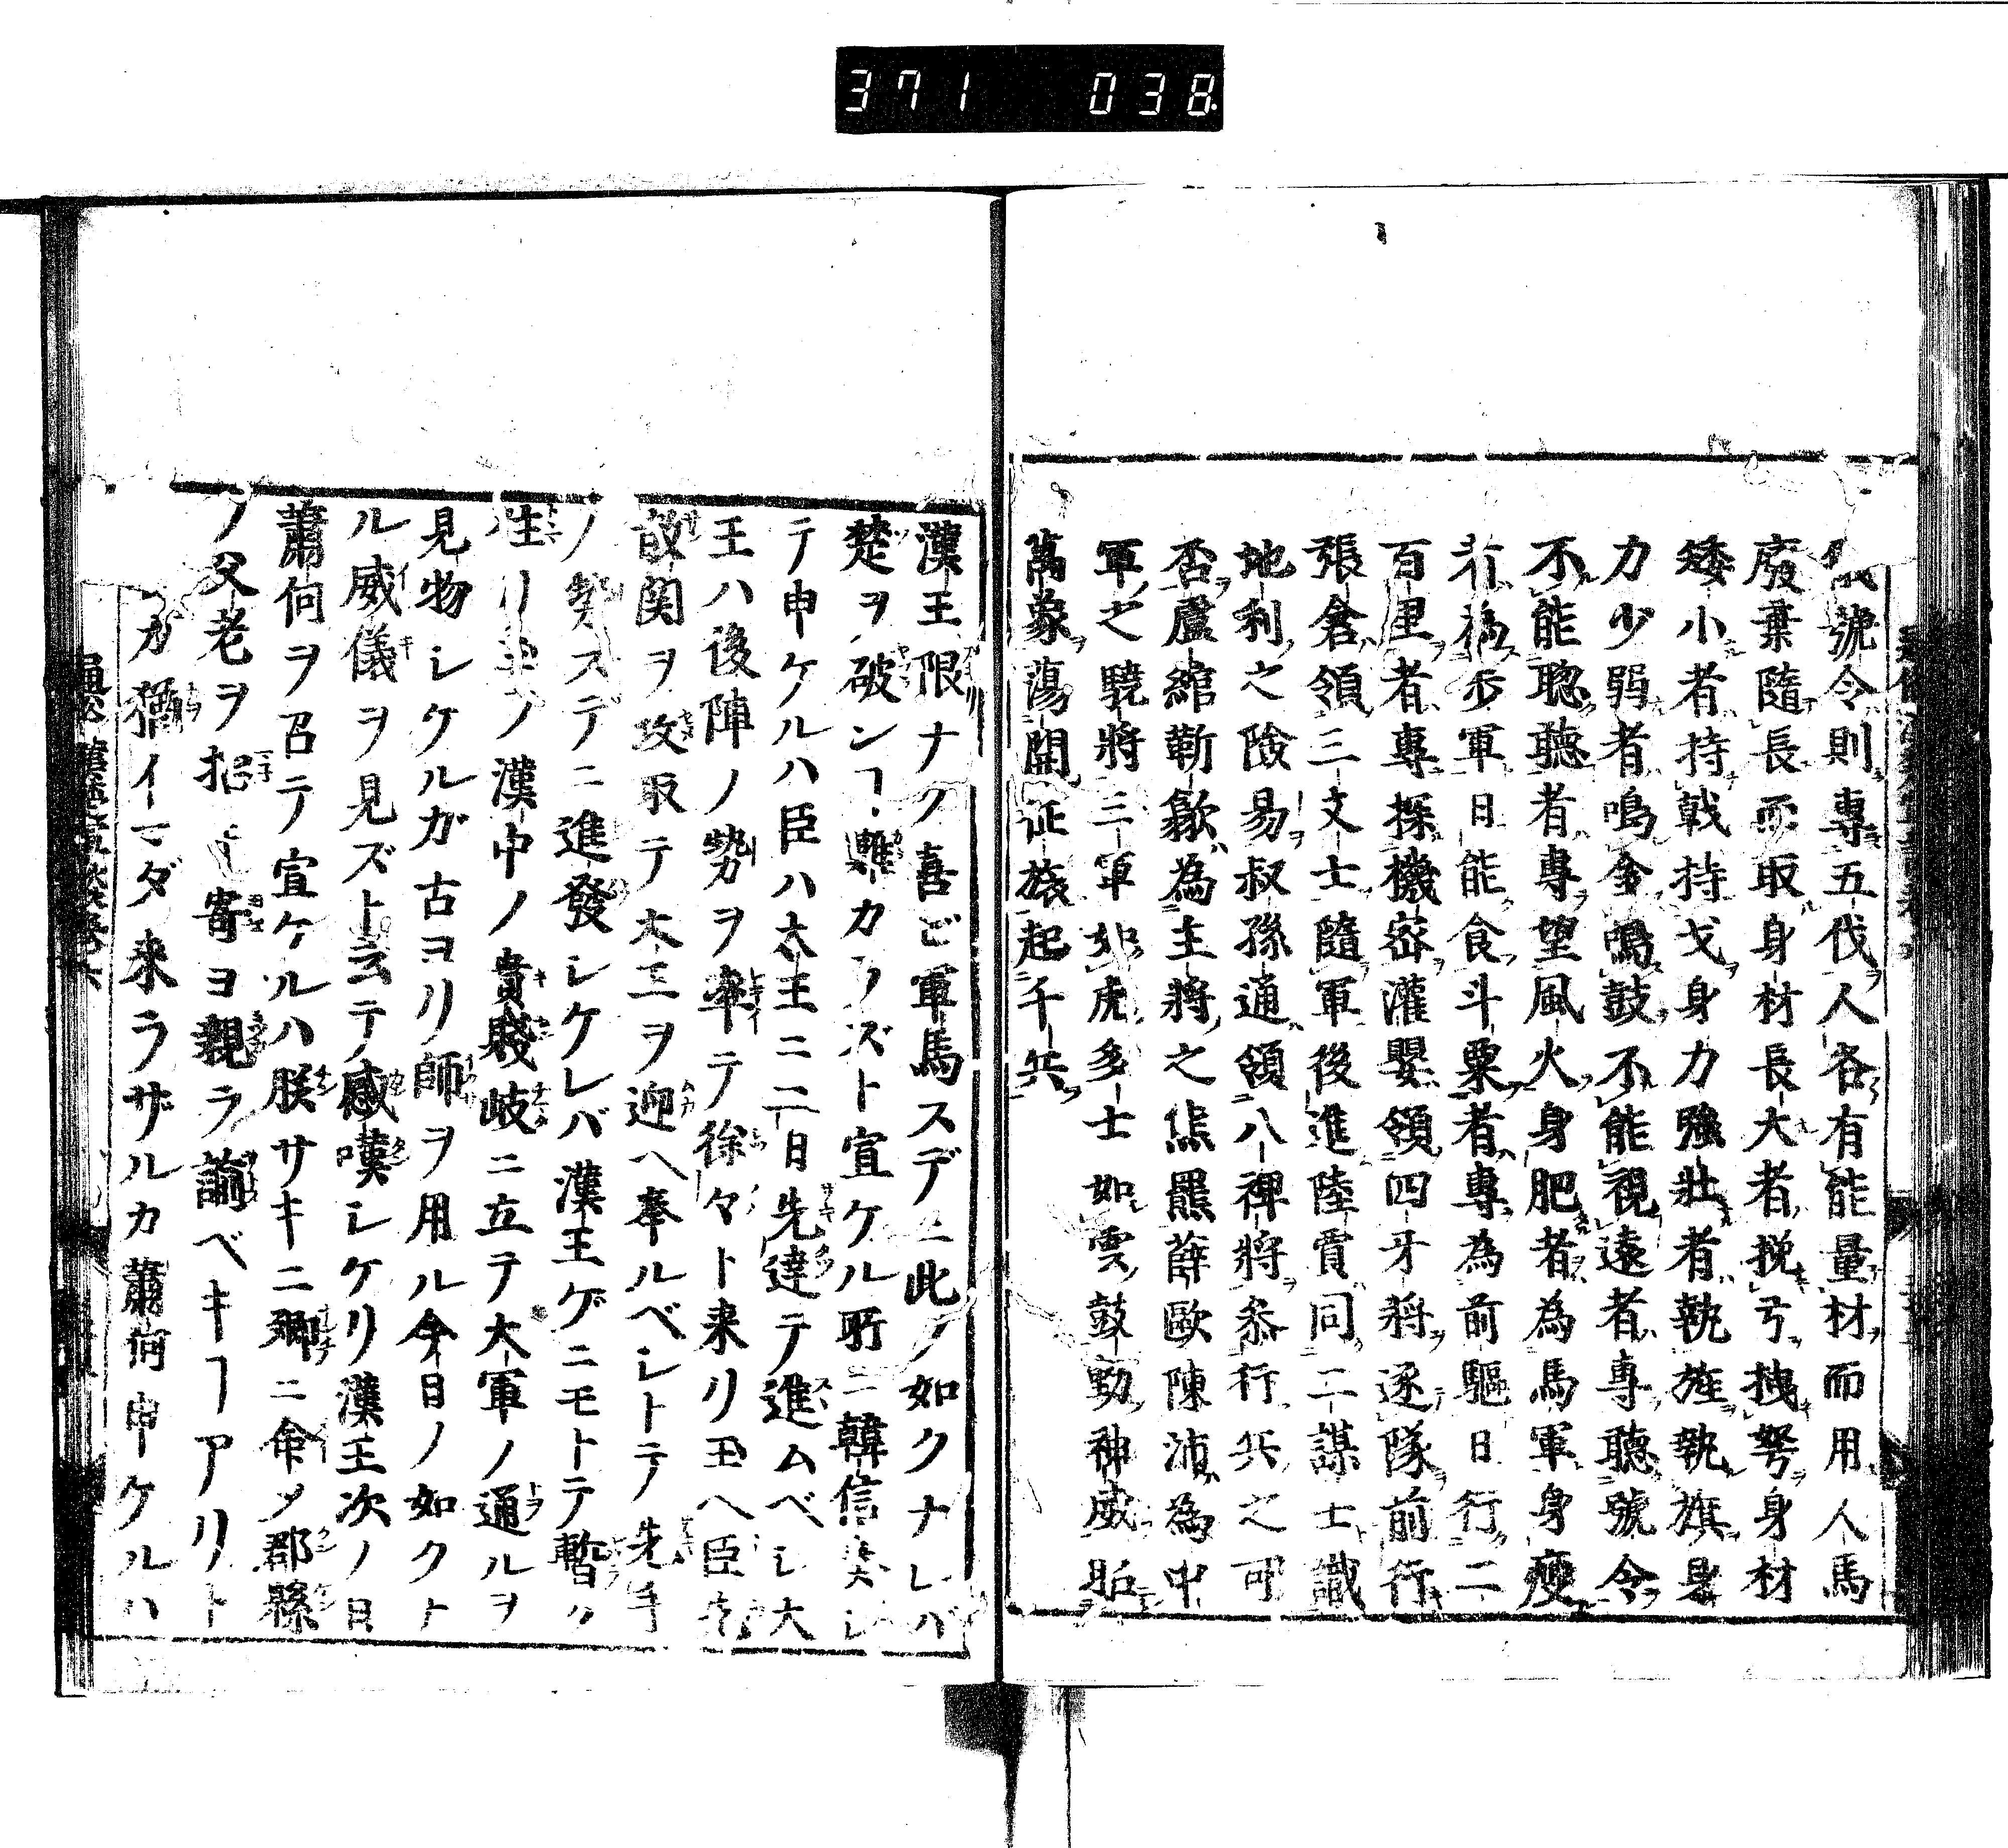 371 038
號令則專五伐人各有能量材而用人馬
廢棄隨長而取身材長大者挽弓拽弩身材
矮小者持戟持戈身力強壯者執旌執旗身
力少弱者鳴金鳴鼓不能視遠者專聽號令
不能聰聽者專望風火身肥者為馬軍身瘦
行為步軍日能食斗粟者專為前驅日行二
百里者專探機密灌嬰領四牙將逐隊前行
張倉領三文士隨軍後進陸賈同二謀士識
地利之險易叔孫通領八裨將叅行兵之可
否盧綰靳歙為主將之熊羆薛歐陳沛為中
軍之驍將三軍如虎多士如雲鼓動神威貼
萬象蕩開征旅起千兵
漢王限ナク喜ビ軍馬スデニ此ノ如クナレバ
楚ヲ破ンヿ難カラズト宣ケル所ニ韓信奏シ
テ申ケルハ臣ハ大王ニ二日先達テ進ムベシ大
王ハ後陣ノ勢ヲ率テ徐々ト来リ玉ヘ臣
散関ヲ攻取テ大王ヲ迎ヘ奉ルベシトテ先手
ノ勢スデニ進發シケレバ漢王ゲニモトテ暫ク
リ玉フ漢中ノ貴賤岐ニ立テ大軍ノ通ルヲ
見物シケルガ古ヨリ師ヲ用ル今日ノ如クト
ル威儀ヲ見ズト云テ感嘆シケリ漢王次ノ日
蕭何ヲ召テ宣ケルハ朕サキニ卿ニ命メ郡縣
ノ父老ヲ招キ寄ヨ親ラ諭ベキヿアリト
ガ猶イマダ来ラザルカ蕭何申ケルハ